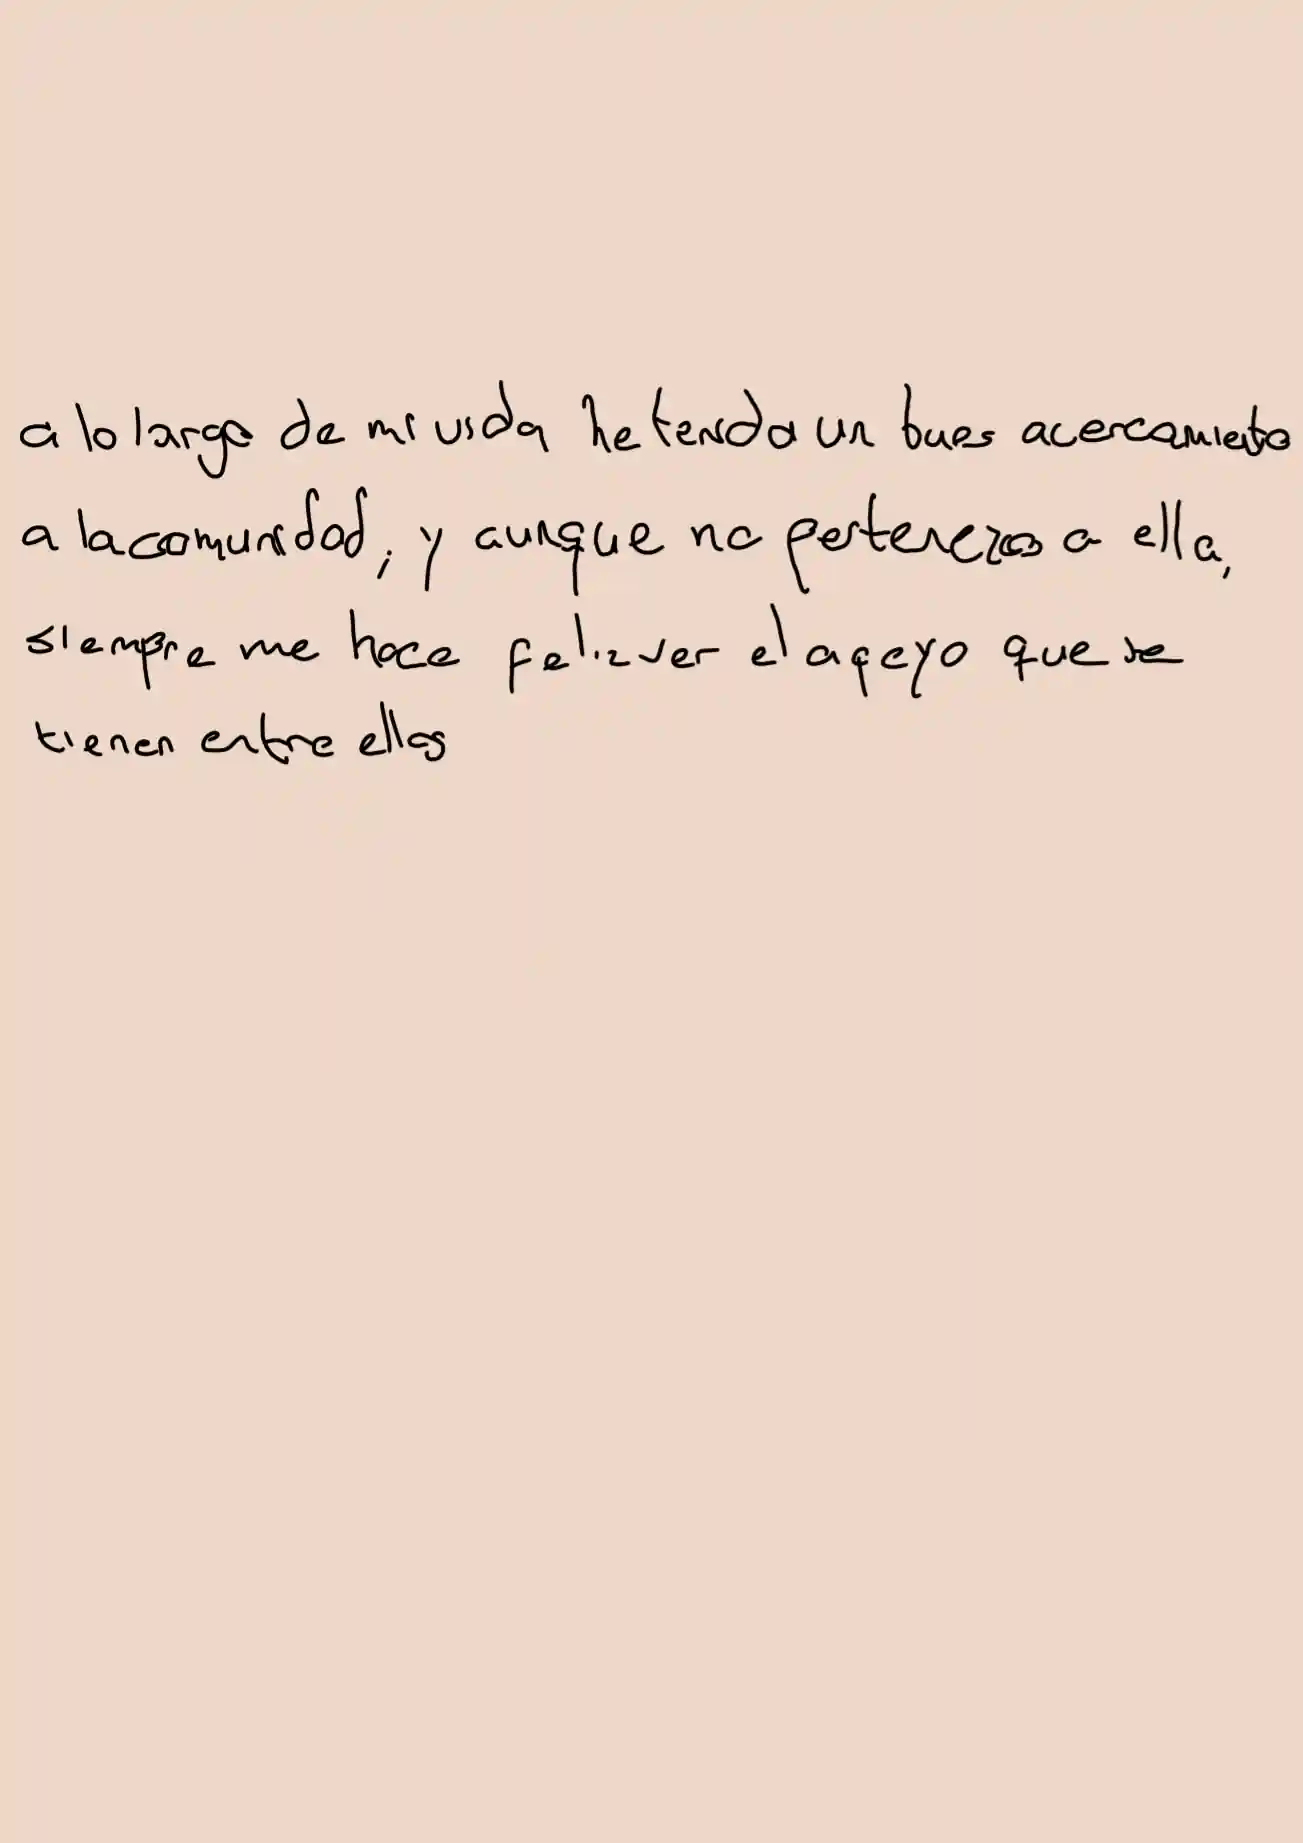 a lo largo de mi vida he tenido un buen acercamiento
a la comunidad, y aunque no pertenezco a ella,
siempre me hace feliz ver el apoyo que se
tienen entre ellos